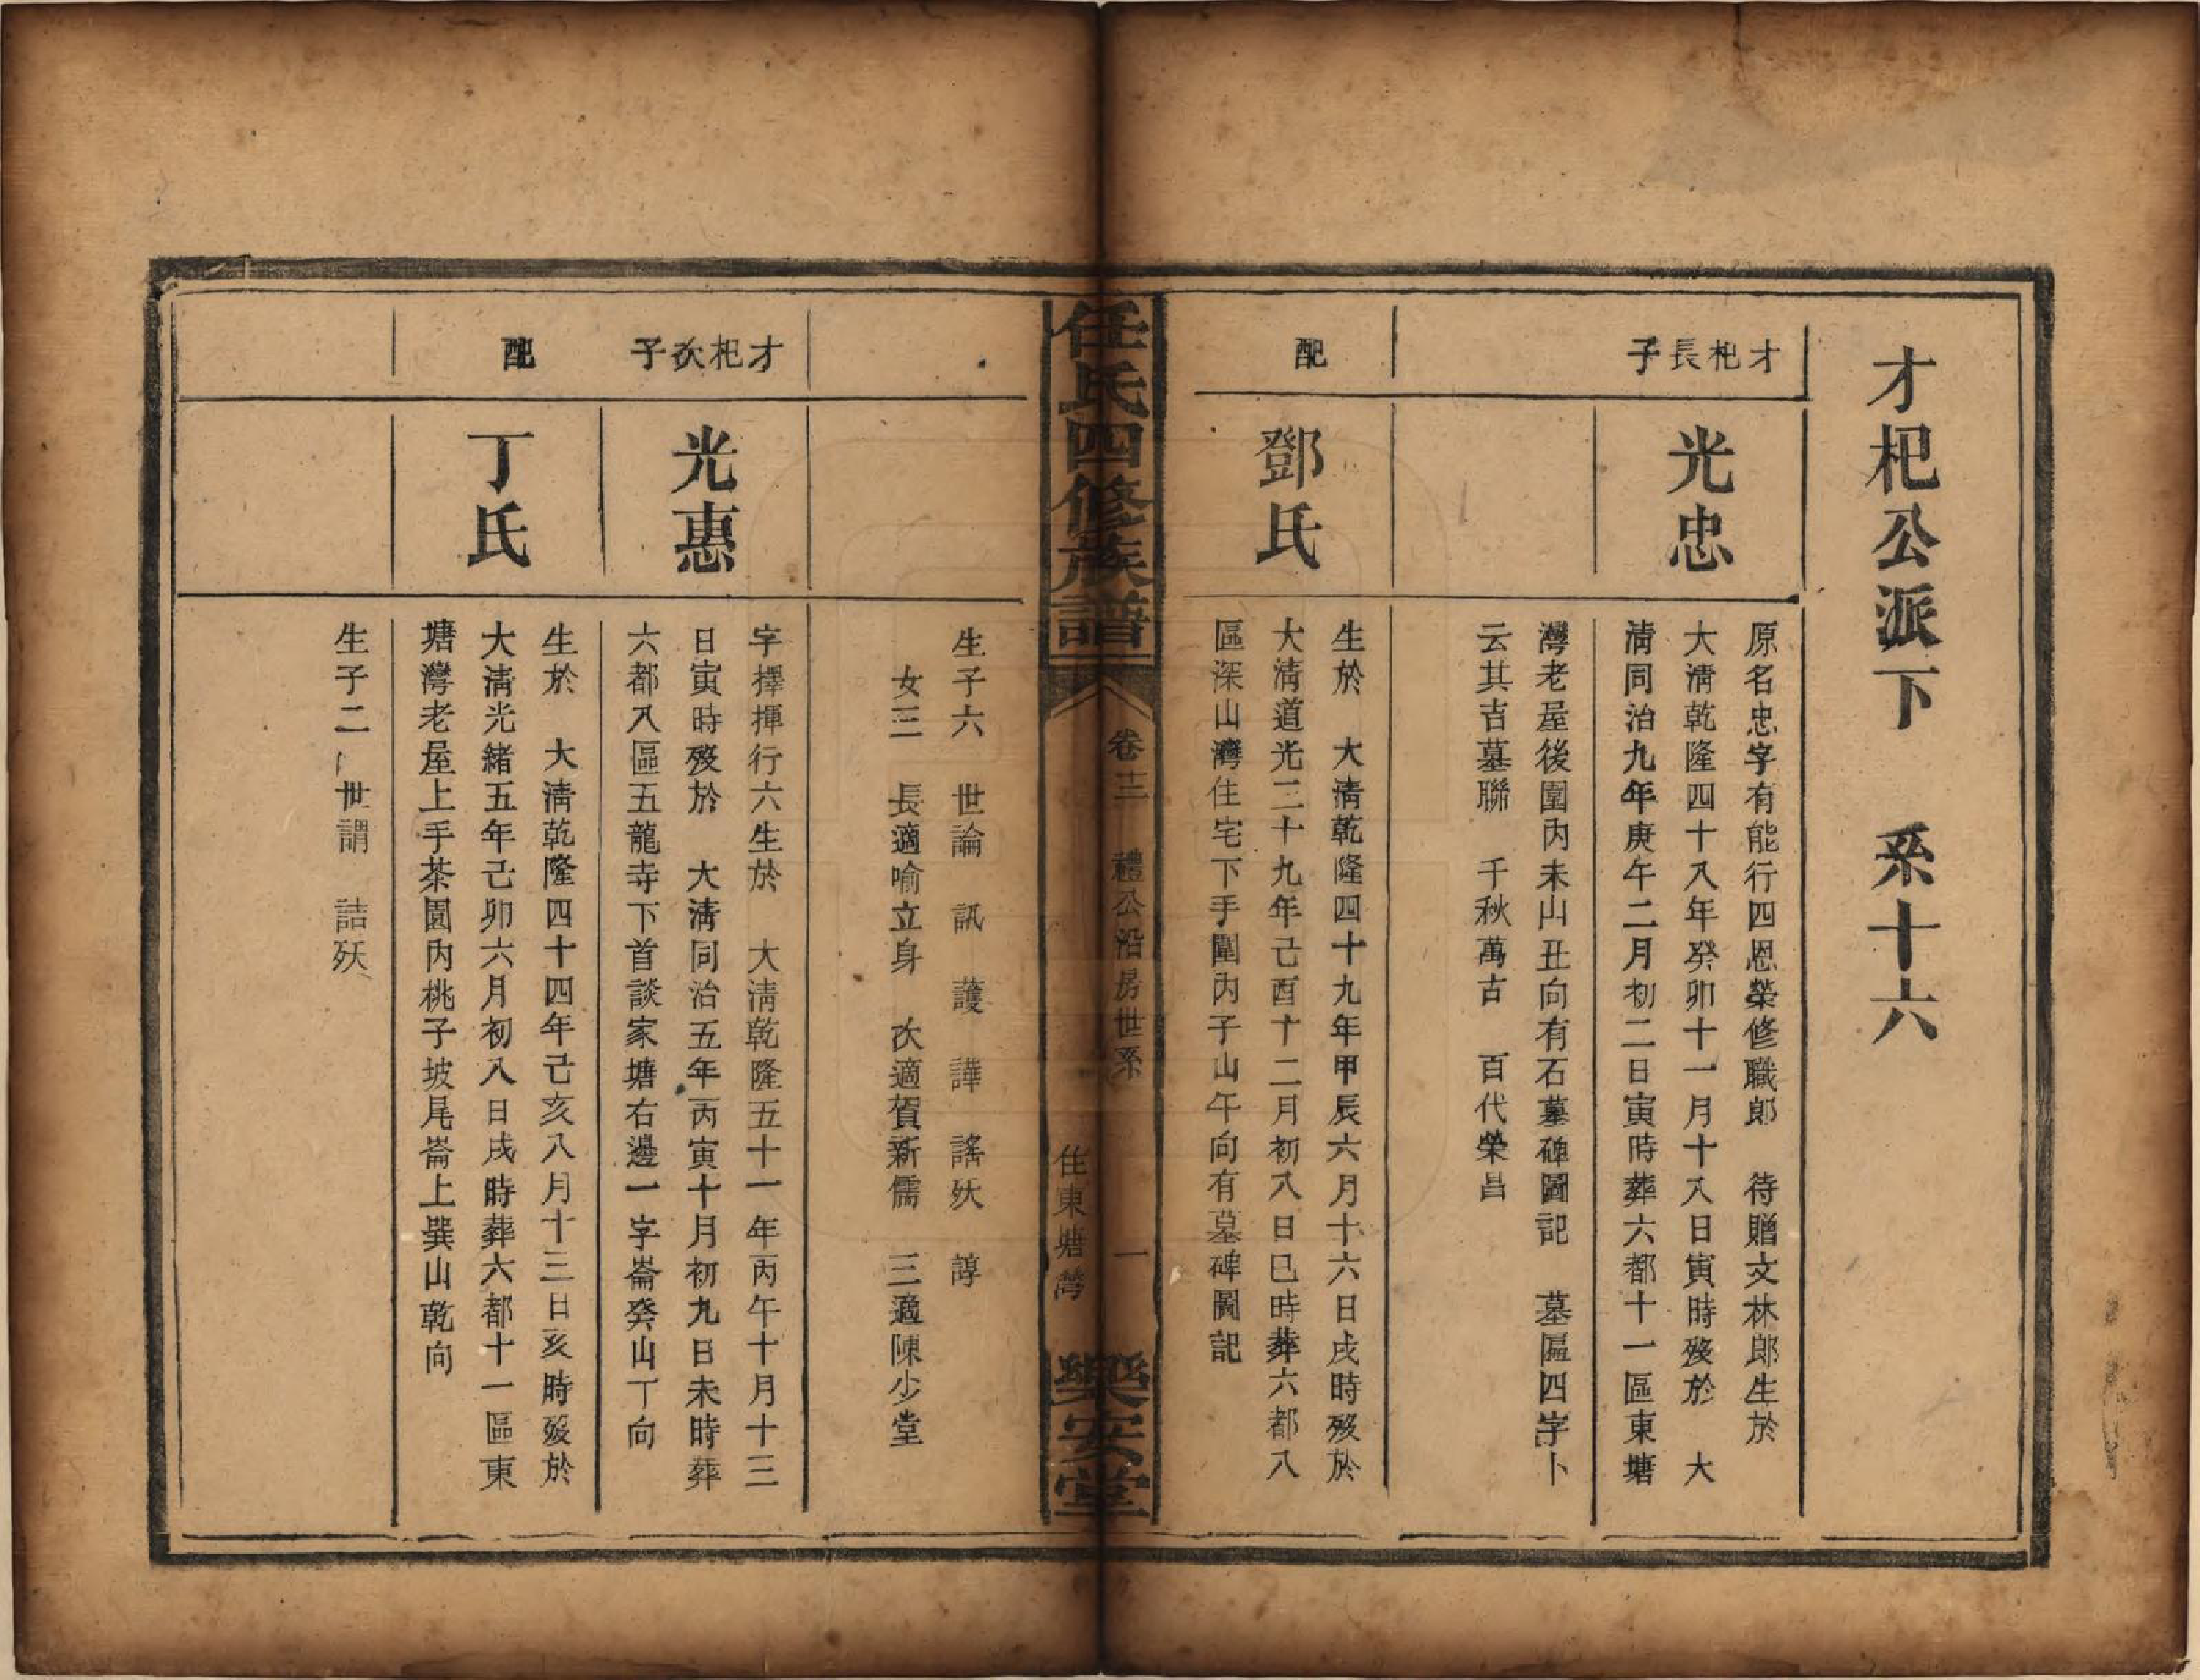 才杞公派下　系十六
才杞長子
光忠
原名忠字有能行四恩榮修職郎　待贈文林郎生於
大清乾隆四十八年癸卯十一月十八日寅時殁於　大
清同治九年庚午二月初二日寅時葬六都十一區東塘
灣老屋後園內未山丑向有石墓碑圖記　墓匾四字卜
云其吉墓聯　千秋萬古　百代榮昌
配
鄧氏
生於　大清乾隆四十九年甲辰六月十六日戌時殁於
大清道光二十九年己酉十二月初八日巳時葬六都八
區深山灣住宅下手園內子山午向有墓碑圖記
任氏四修族譜
卷三　禮公沿房世系　一
住東塘灣
樂安堂
生子六　世論　訊　護　譁　謠殀　諄
女三　長適喻立身　次適賀新儒　三適陳少堂
才杞次子
光惠
字擇揮行六生於　大清乾隆五十一年丙午十月十三
日寅時殁於　大清同治五年丙寅十月初九日未時葬
六都八區五龍寺下首談家塘右邊一字崙癸山丁向
配
丁氏
生於　大清乾隆四十四年己亥八月十三日亥時殁於
大清光緒五年己卯六月初八日戌時葬六都十一區東
塘灣老屋上手茶園內桃子坡尾崙上巽山乾向
生子二　世謂　詰殀